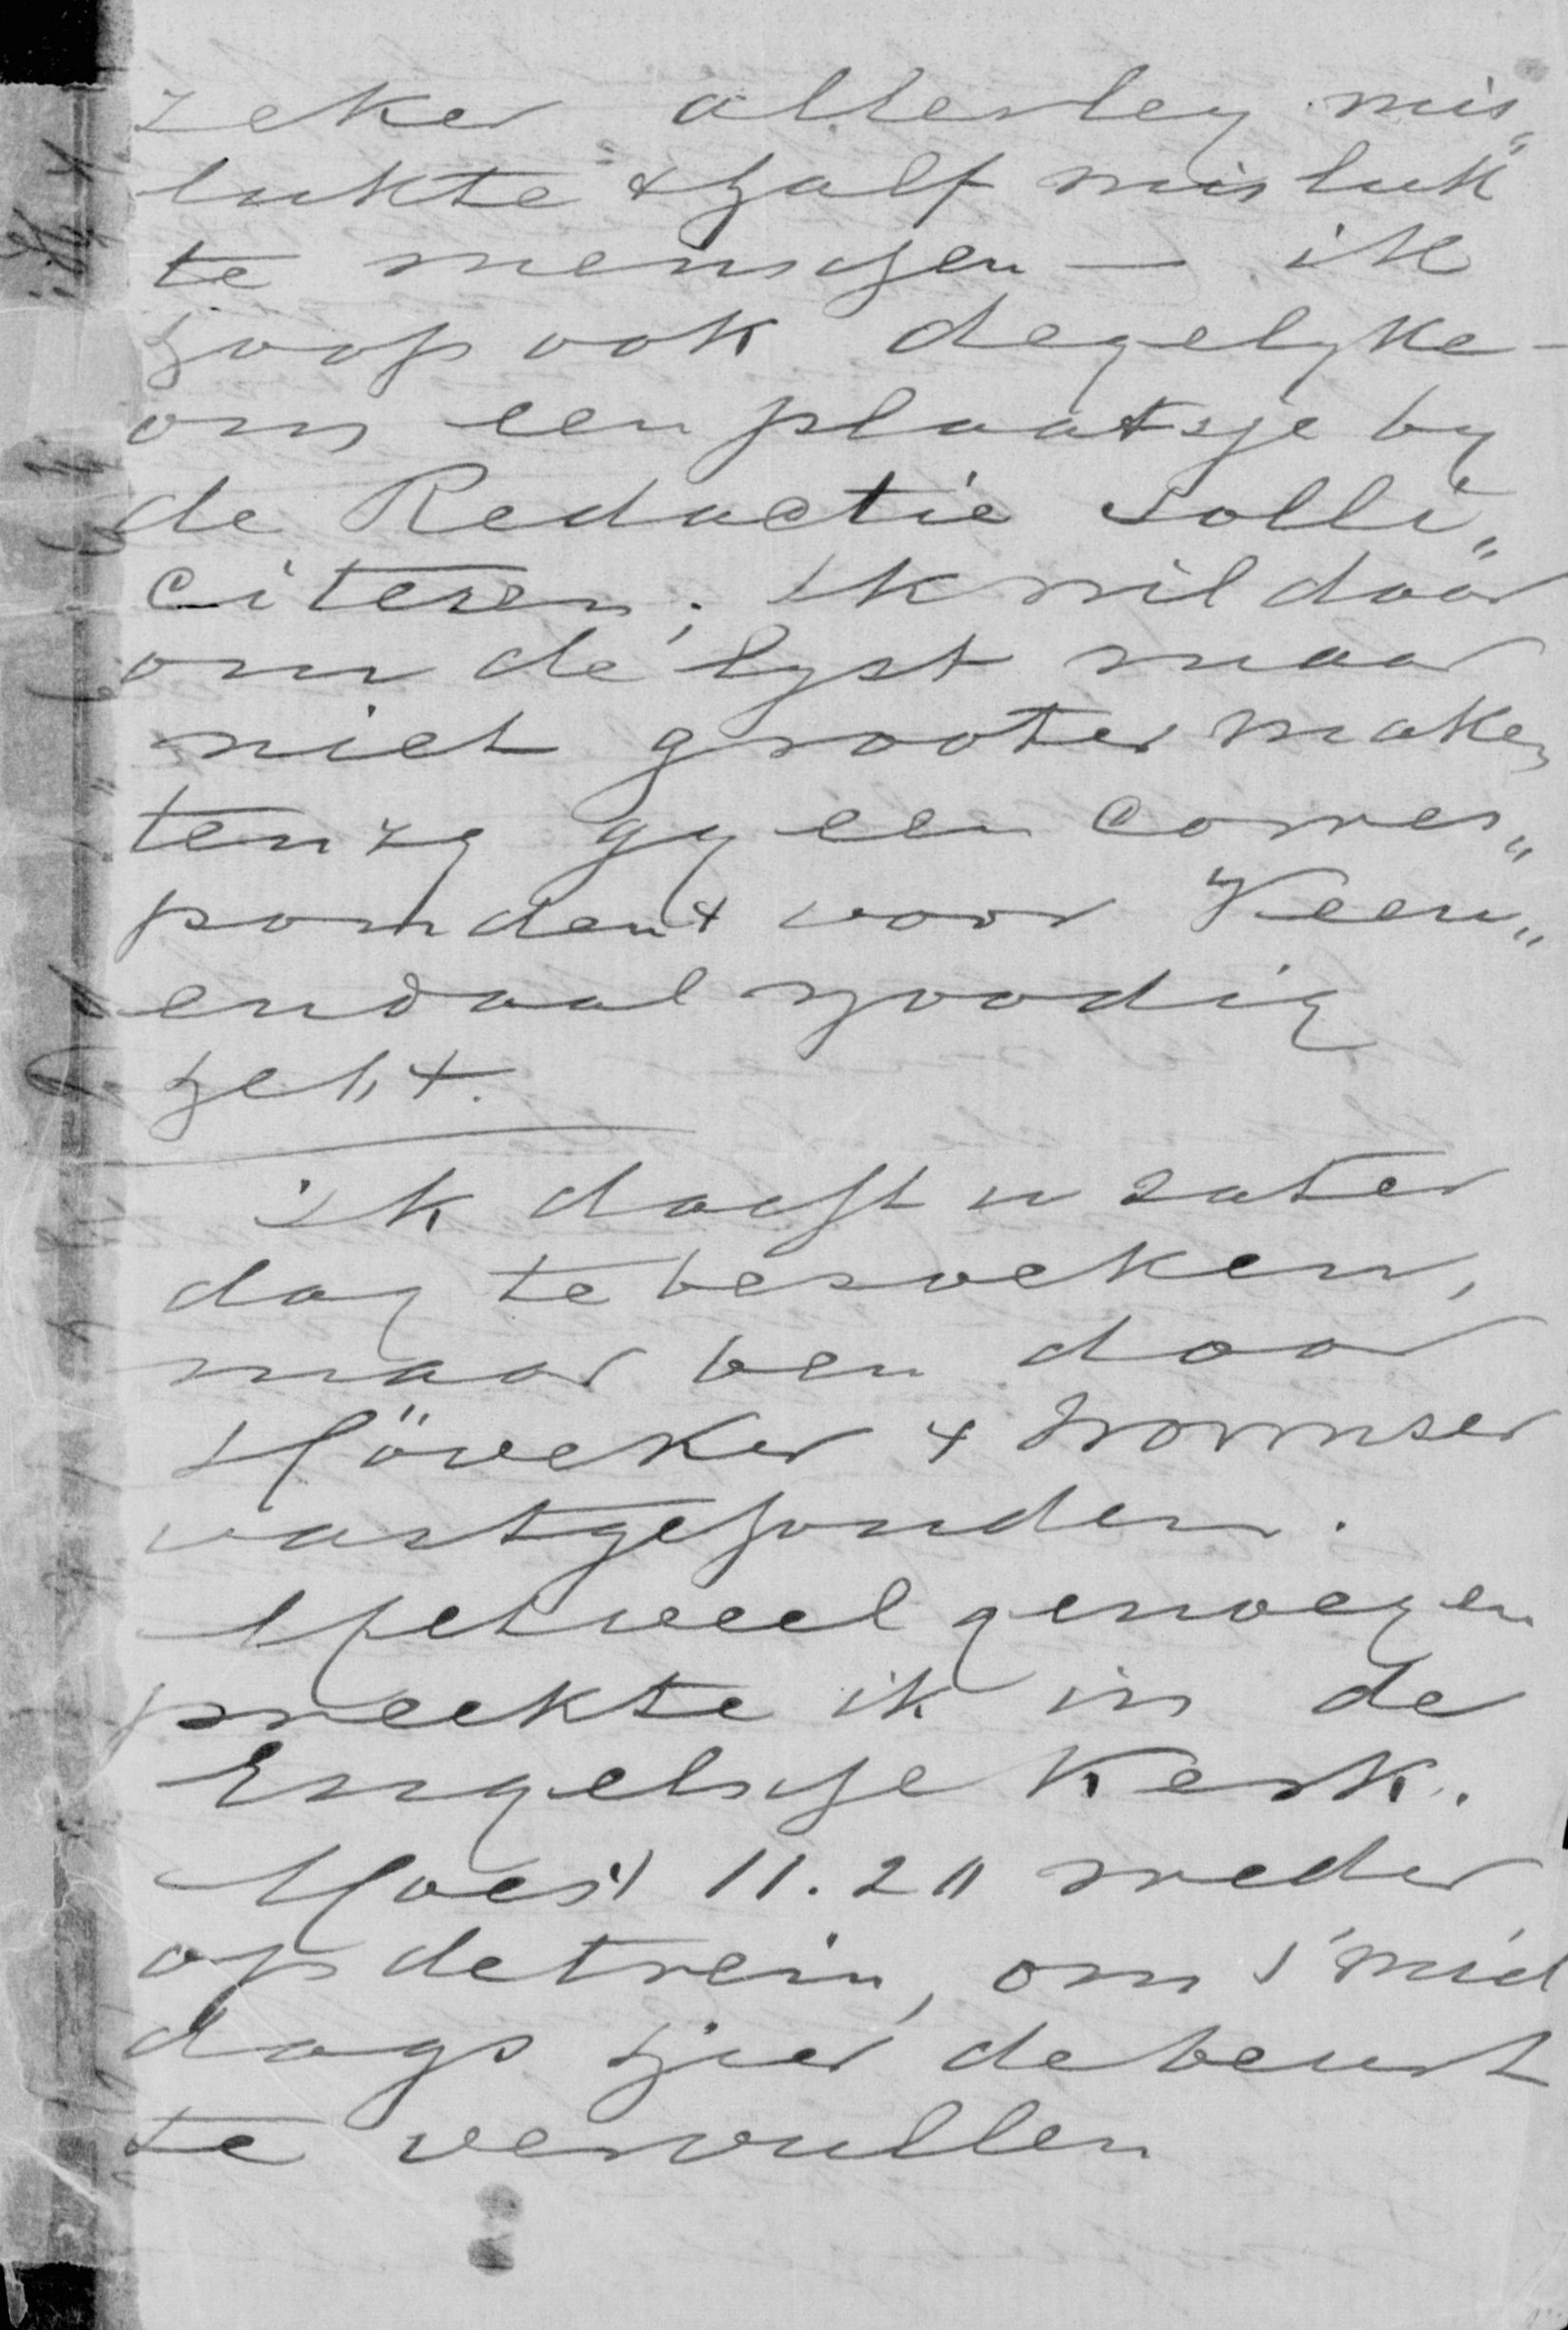 zeker allerley mis„
lukte & half misluk„
te menschen — ik
hoop ook degelyke —
om een plaatsje by
de Redactie solli„
citeren; ik wil daar
om de lyst maar
niet grooter maken
tenzy gy een corres„
pondent voor Veen„
endaal noodig
hebt.
ik dacht u zater
dag te bezoeken,
maar ben door
Höveker & Wormser
vastgehouden.
Met veel genoegen
preekte ik in de
Engelsche Kerk.
Moest 11.20 weder
op de trein, om s'mid
dags hier de beurt
te vervullen